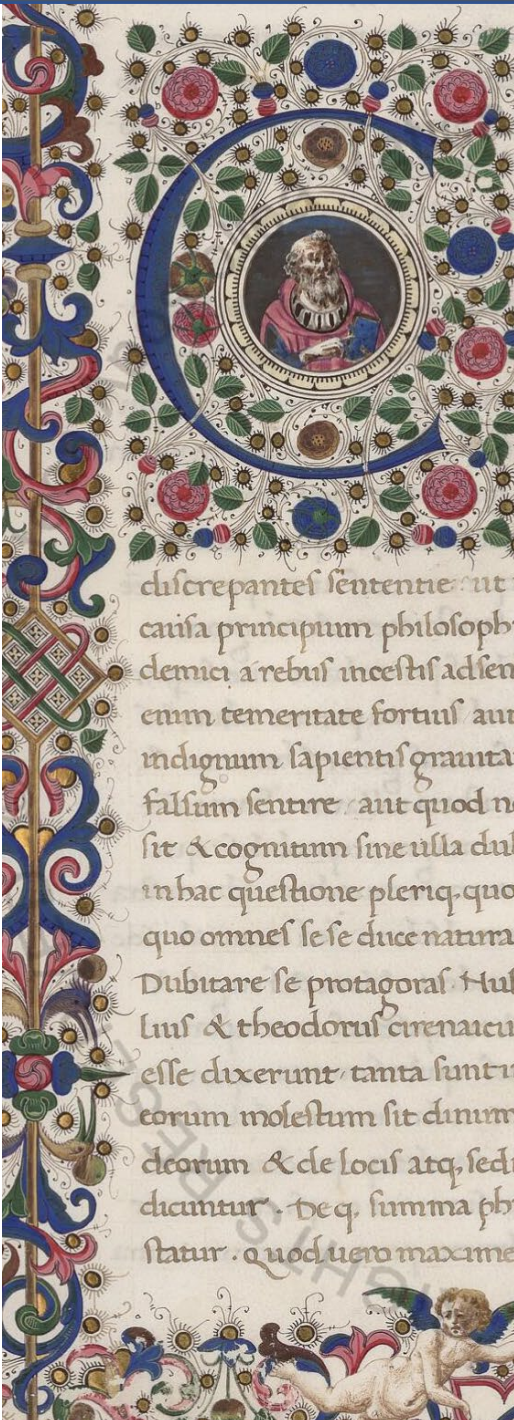 C
discrepantes sententie ut
causa principium philosoph
demici a rebus incestis adsen
enim temeritate fortius aut
indignum sapientis grauita
falsum sentire aut quod no
sit & cognitum sine ulla dub
in hac questione pleriq, quo
quo omnes se se duce natura
Dubitare se protagoras Nul
lius & theodorus cirenaicu
esse dixerunt tanta sunt
eorum molestum sit dinum
deorum & de locis atq, sedi
dicuntur . De q, summa ph
statur . quod uero maxime